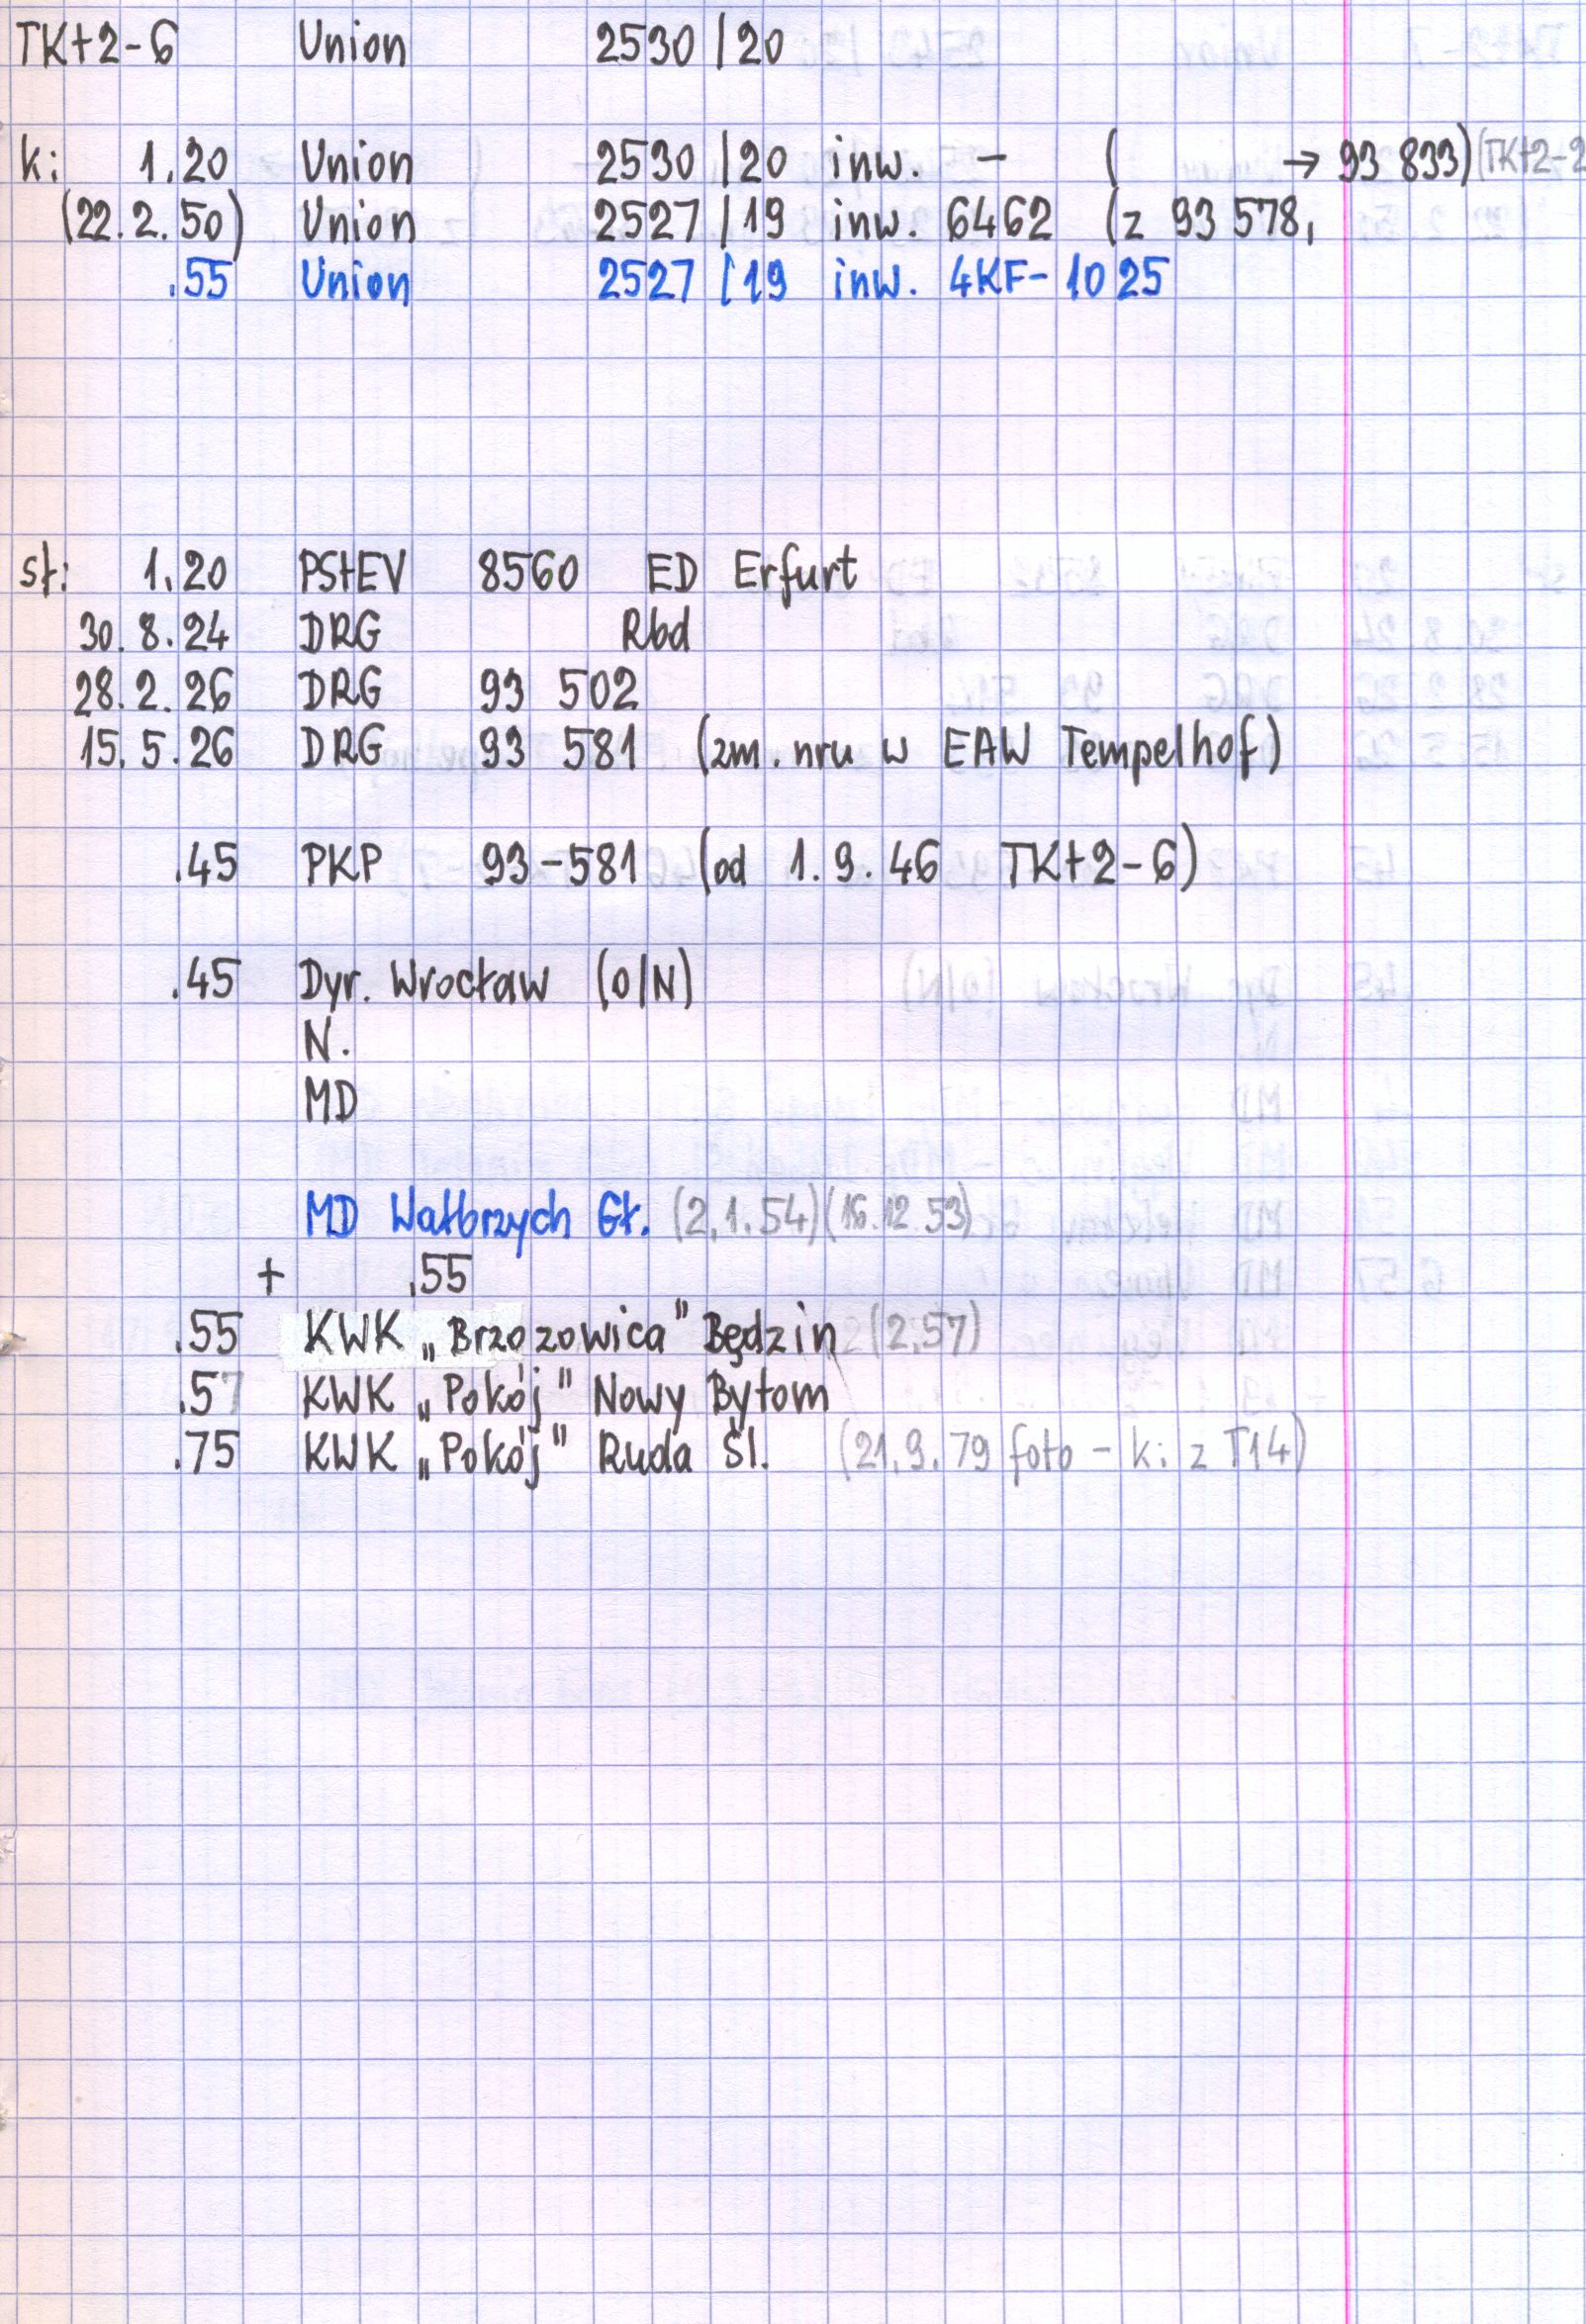 TKt2-6 Union 2530/20
k: 1.20 Union 2530/20 inw. - ( → 93 833) (TKt2-2
(22.2.50) Union 2527/19 inw. 6462 (z 93 578,
.55 Union 2527/19 inw. 4KF-1025
st: 1.20 PStEV 8560 ED Erfurt
30.8.24 DRG Rbd
28.2.26 DRG 93 502
15.5.26 DRG 93 581 (zm. nru w EAW Tempelhof)
.45 PKP 93-581 (od 1.9.46 TKt2-6)
.45 Dyr. Wrocław (O/N)
N.
MD
MD Wałbrzych Gł. (2.1.54) (16.12.53)
+ .55
.55 KWK „Brzozowica" Będzin (2.57)
.57 KWK „Pokój" Nowy Bytom
.75 KWK „Pokój" Ruda Śl. (21.9.79 foto - k: z T14)